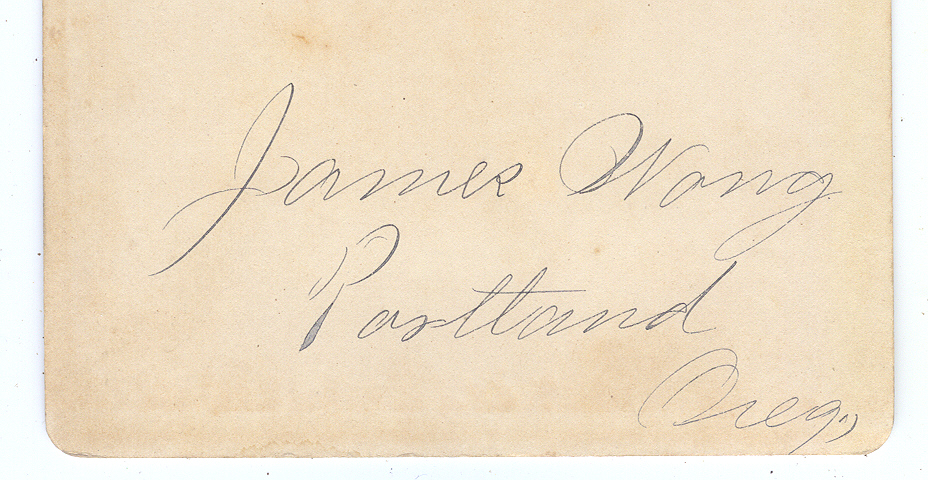 James Wong
Portland
Oreg.